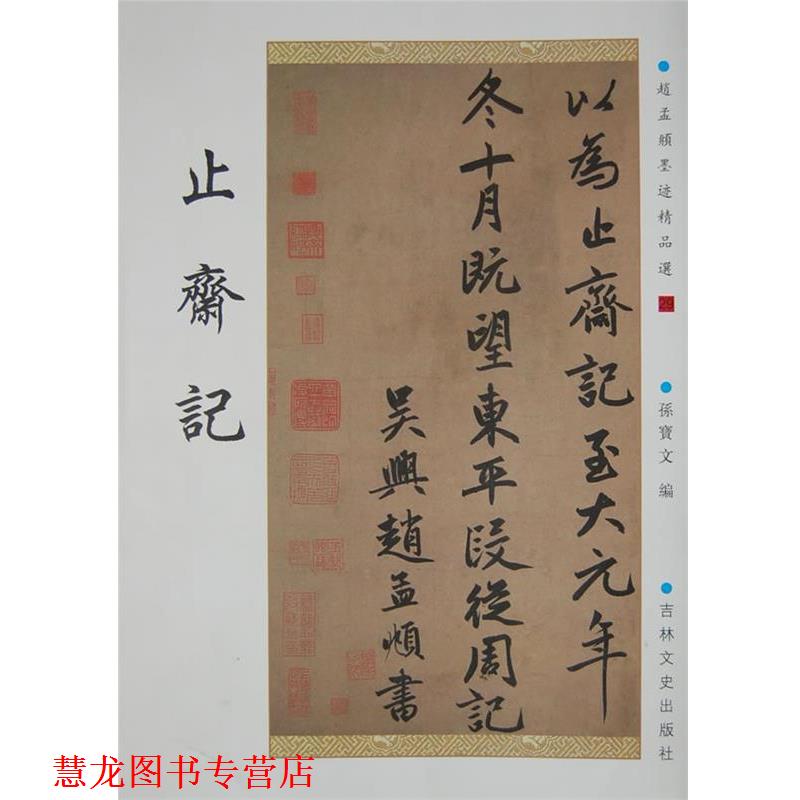 趙孟頫墨迹精品選 29
孫寶文 編
吉林文史出版社
以為止齋記至大元年
冬十月既望東平段從周記
吴興趙孟頫書
止齋記
慧龙图书专营店